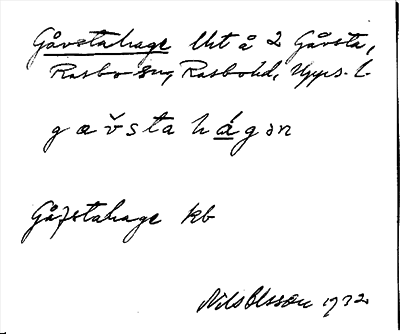 Gåvstahage lht å 2 Gåvsta,
Rasbo sn, Rasbo hd, Upps. l.
gævsta hágən
Gåfstahage kb
Nils Olsson 1932